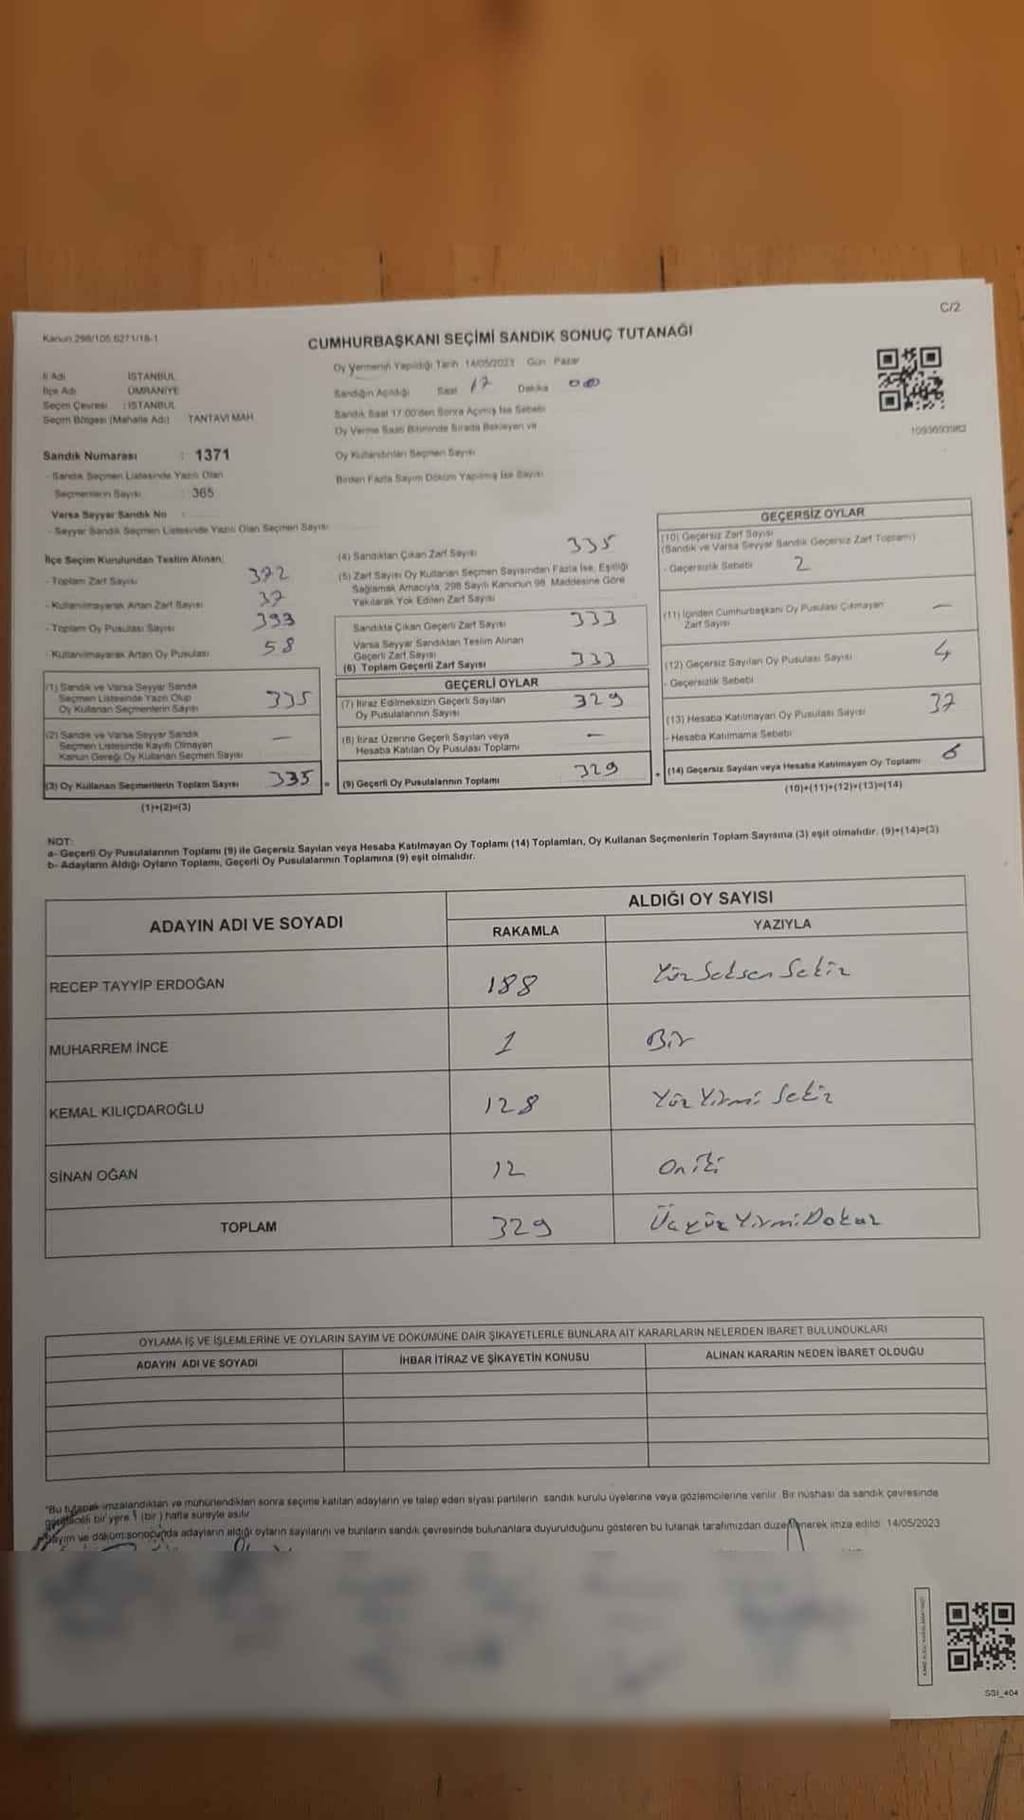 C/2
Kanun 298/105 6271/18-1
CUMHURBAŞKANI SEÇİMİ SANDIK SONUÇ TUTANAĞI
Oy Vermenin Yapıldığı Tarih 14/05/2023 Gün Pazar
İl Adı İSTANBUL
İlçe Adı ÜMRANİYE
Seçim Çevresi : İSTANBUL
Seçim Bölgesi (Mahalle Adı) TANTAVİ MAH
Sandığın Açıldığı Saat 17 Dakika 00
Sandık Saat 17.00'den Sonra Açılmış İse Sebebi
Oy Verme Saati Bitiminde Sırada Bekleyen ve
Oy Kullandırılan Seçmen Sayısı
Birden Fazla Sayım Döküm Yapılmış İse Sayısı
Sandık Numarası : 1371
- Sandık Seçmen Listesinde Yazılı Olan
Seçmenlerin Sayısı : 365
Varsa Seyyar Sandık No :
- Seyyar Sandık Seçmen Listesinde Yazılı Olan Seçmen Sayısı
İlçe Seçim Kurulundan Teslim Alınan;
- Toplam Zarf Sayısı 372
- Kullanılmayarak Artan Zarf Sayısı 37
- Toplam Oy Pusulası Sayısı 393
- Kullanılmayarak Artan Oy Pusulası 58
(1) Sandık ve Varsa Seyyar Sandık
Seçmen Listesinde Yazılı Olup
Oy Kullanan Seçmenlerin Sayısı 335
(2) Sandık ve Varsa Seyyar Sandık
Seçmen Listesinde Kayıtlı Olmayan
Kanun Gereği Oy Kullanan Seçmen Sayısı —
(3) Oy Kullanan Seçmenlerin Toplam Sayısı 335
(1)+(2)=(3)
(4) Sandıktan Çıkan Zarf Sayısı 335
(5) Zarf Sayısı Oy Kullanan Seçmen Sayısından Fazla İse, Eşitliği
Sağlamak Amacıyla, 298 Sayılı Kanunun 98. Maddesine Göre
Yakılarak Yok Edilen Zarf Sayısı
Sandıkta Çıkan Geçerli Zarf Sayısı 333
Varsa Seyyar Sandıktan Teslim Alınan
Geçerli Zarf Sayısı
(6) Toplam Geçerli Zarf Sayısı 333
GEÇERLİ OYLAR
(7) İtiraz Edilmeksizin Geçerli Sayılan
Oy Pusulalarının Sayısı 329
(8) İtiraz Üzerine Geçerli Sayılan veya
Hesaba Katılan Oy Pusulası Toplamı —
= (9) Geçerli Oy Pusulalarının Toplamı 329
GEÇERSİZ OYLAR
(10) Geçersiz Zarf Sayısı
(Sandık ve Varsa Seyyar Sandık Geçersiz Zarf Toplamı)
- Geçersizlik Sebebi 2
(11) İçinden Cumhurbaşkanı Oy Pusulası Çıkmayan
Zarf Sayısı —
(12) Geçersiz Sayılan Oy Pusulası Sayısı 4
- Geçersizlik Sebebi
(13) Hesaba Katılmayan Oy Pusulası Sayısı 37
- Hesaba Katılmama Sebebi
+ (14) Geçersiz Sayılan veya Hesaba Katılmayan Oy Toplamı 6
(10)+(11)+(12)+(13)=(14)
NOT:
a- Geçerli Oy Pusulalarının Toplamı (9) ile Geçersiz Sayılan veya Hesaba Katılmayan Oy Toplamı (14) Toplamları, Oy Kullanan Seçmenlerin Toplam Sayısına (3) eşit olmalıdır. (9)+(14)=(3)
b- Adayların Aldığı Oyların Toplamı, Geçerli Oy Pusulalarının Toplamına (9) eşit olmalıdır.
ADAYIN ADI VE SOYADI
ALDIĞI OY SAYISI
RAKAMLA YAZIYLA
RECEP TAYYİP ERDOĞAN 188 Yüz Seksen Sekiz
MUHARREM İNCE 1 Bir
KEMAL KILIÇDAROĞLU 128 Yüz Yirmi Sekiz
SİNAN OĞAN 12 On iki
TOPLAM 329 Üç yüz Yirmi Dokuz
OYLAMA İŞ VE İŞLEMLERİNE VE OYLARIN SAYIM VE DÖKÜMÜNE DAİR ŞİKAYETLERLE BUNLARA AİT KARARLARIN NELERDEN İBARET BULUNDUKLARI
ADAYIN ADI VE SOYADI İHBAR İTİRAZ VE ŞİKAYETİN KONUSU ALINAN KARARIN NEDEN İBARET OLDUĞU
*Bu tutanak imzalandıktan ve mühürlendikten sonra seçime katılan adayların ve talep eden siyasi partilerin sandık kurulu üyelerine veya gözlemcilerine verilir. Bir nüshası da sandık çevresinde
görülebilecek bir yere 1 (bir) hafta süreyle asılır
Sayım ve döküm sonucunda adayların aldığı oyların sayılarını ve bunların sandık çevresinde bulunanlara duyurulduğunu gösteren bu tutanak tarafımızdan düzenlenerek imza edildi. 14/05/2023
SSI_404